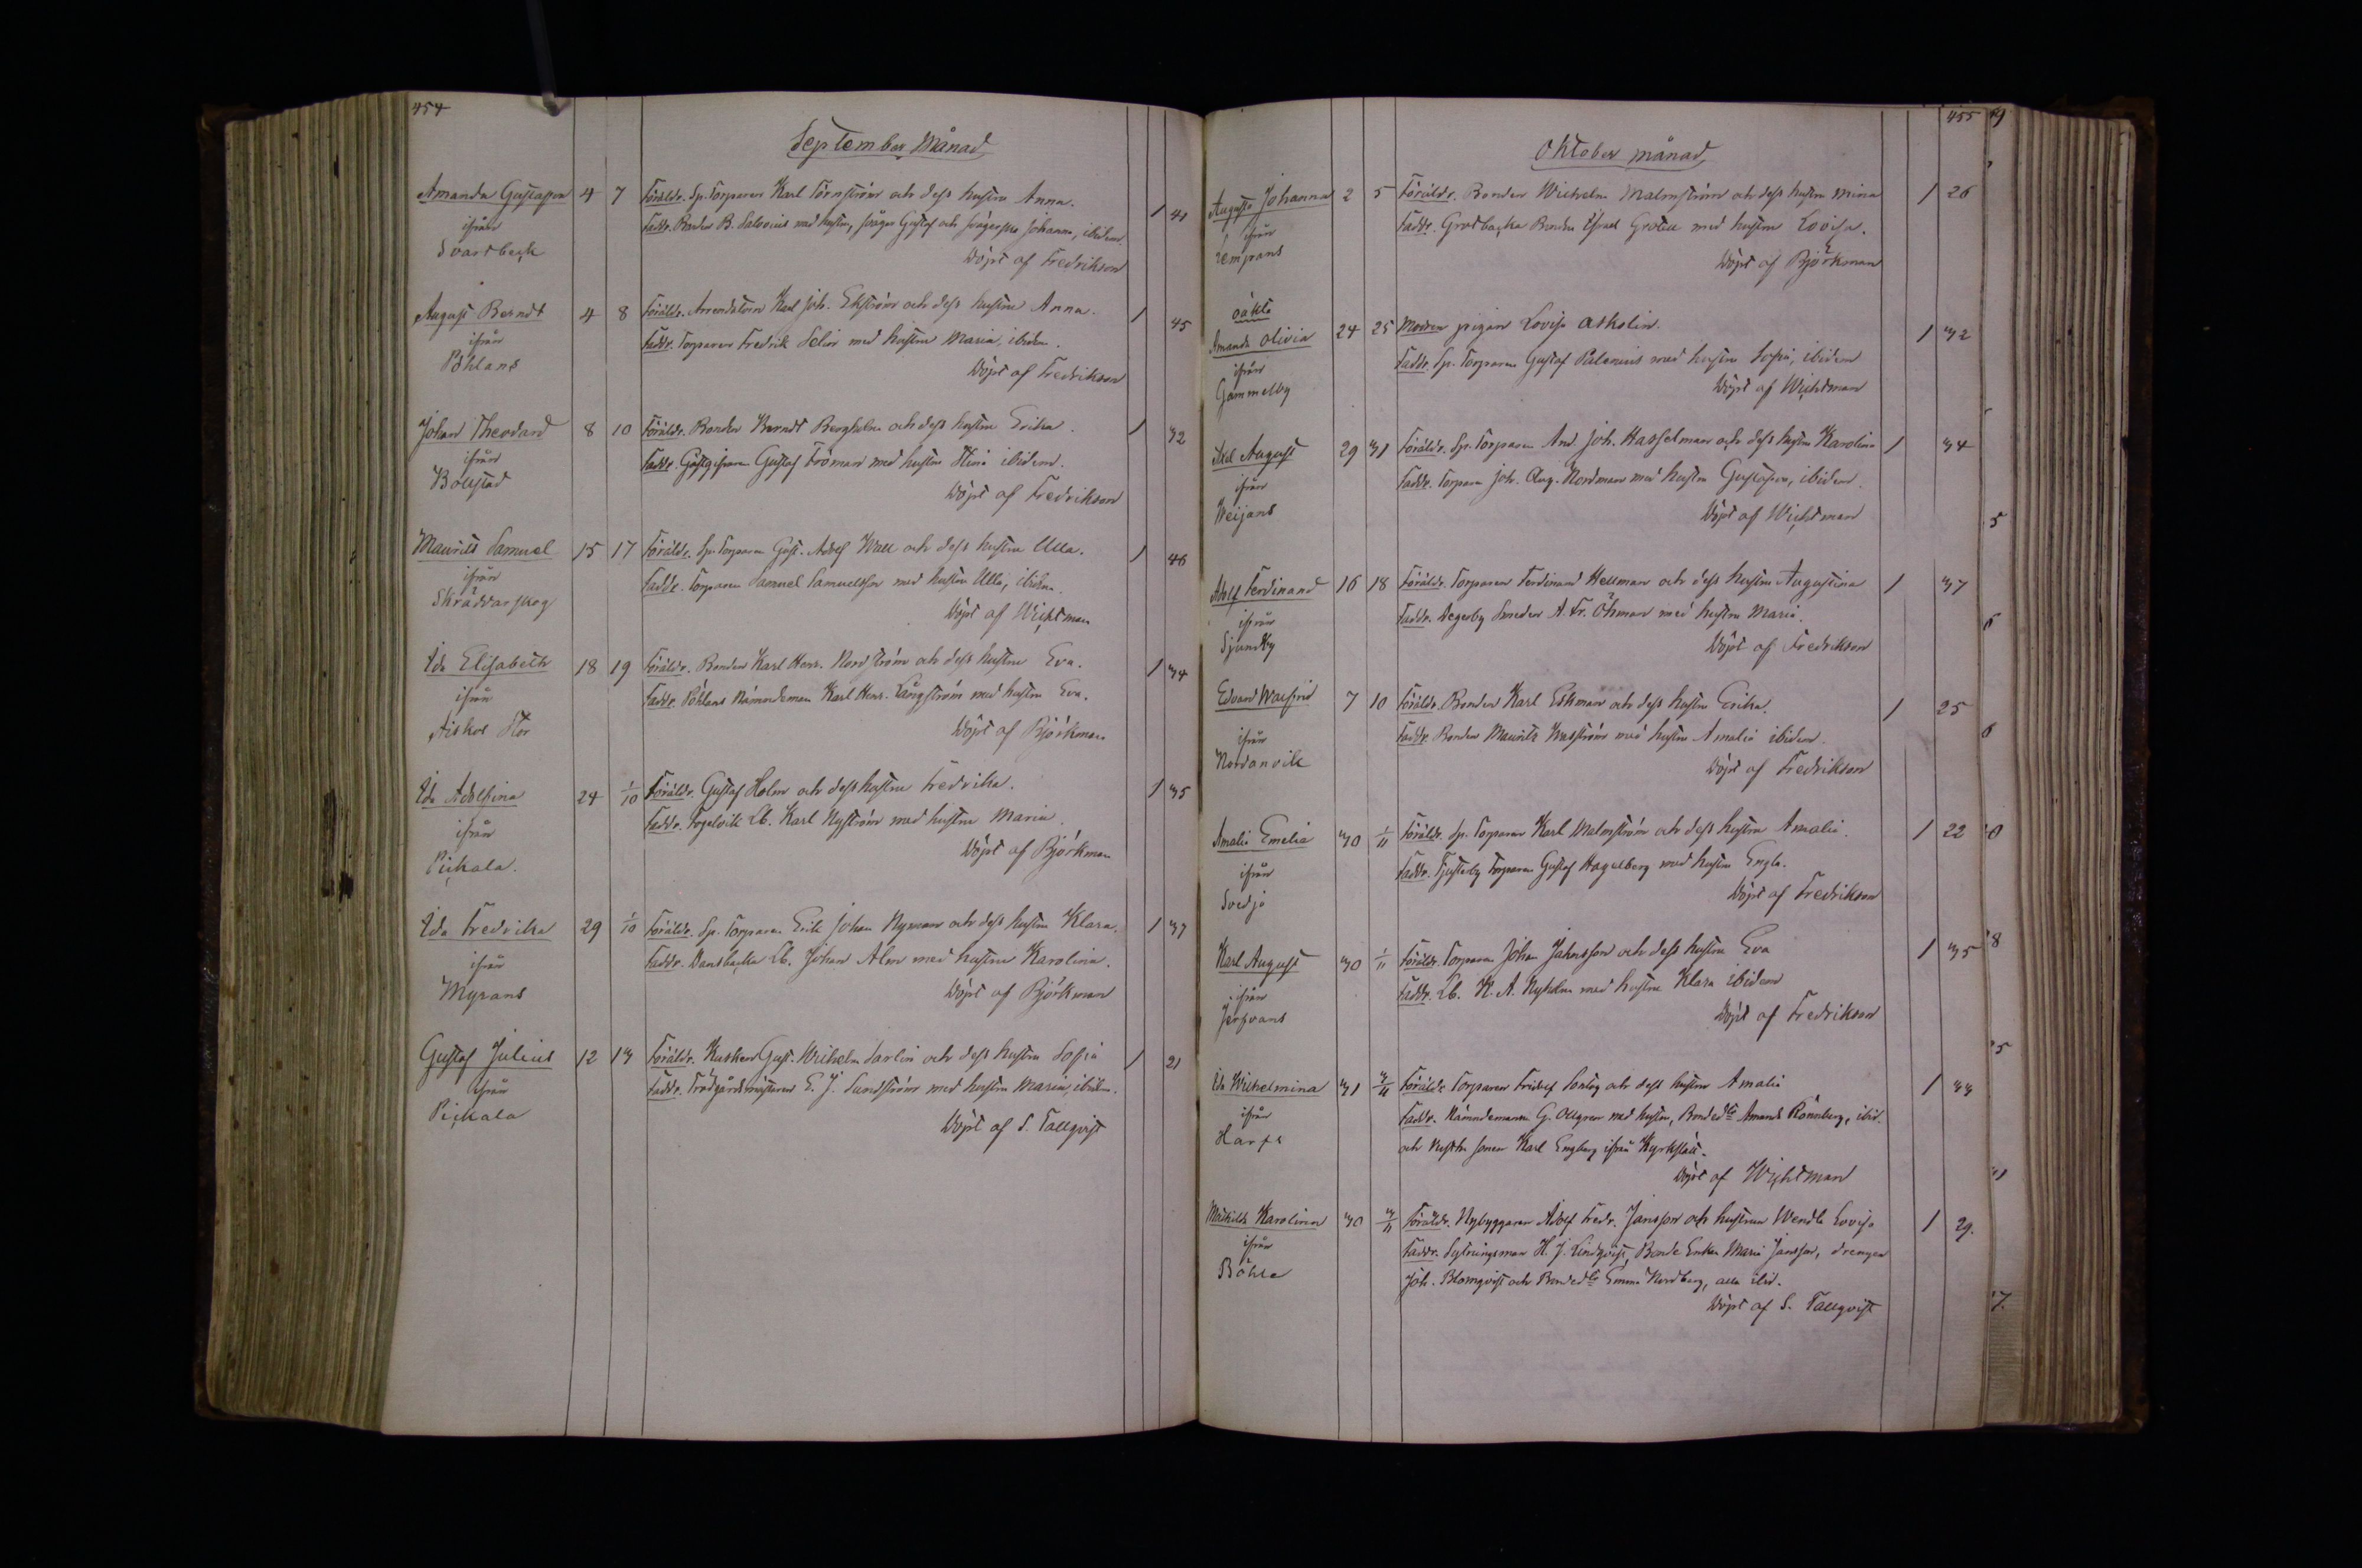 454
September Månad
Amanda Gustafva 4 7 Föräldr. Sp. Torparen Karl Törnström och dess hustru Anna. 1 41
ifrån Faddr. Bonden B. Salvenius med hustru, svåger Gustaf och svägerska Johanna, ibidem.
Svartbeck Döpt af Fredrikson
August Berndt 4 8 Föräldr. Arrendatorn Karl Joh. Ekström och dess hustru Anna. 1 45
ifrån Faddr. Torparen Fredrik Selin med hustru Maria, ibidem.
Påhlans Döpt af Fredrikson
Johan Theodard 8 10 Föräldr. Bonden Berndt Bergholm och dess hustru Erika. 1 32
ifrån Faddr. Gästgifvaren Gustaf Fröman med hustru Stina ibidem.
Bollstad Döpt af Fredrikson
Maurits Samuel 15 17 Föräldr. Sp. Torparen Gust. Adolf Wall och dess hustru Ulla. 1 46
ifrån Faddr. Torparen Samuel Samuelsson med hustru Ulla, ibidem.
Skräddarskog Döpt af Wichtman
Ida Elisabeth 18 19 Föräldr. Bonden Karl Henr. Nordström och dess hustru Eva. 1 34
ifrån Faddr. Påhlans Nämndeman Karl Henr. Långström med hustru Eva.
Aiskos Stor Döpt af Björkman
Ida Adolfina 24 1/10 Föräldr. Gustaf Holm och dess hustru Fredrika. 1 35
ifrån Faddr. Fogelvik Lb. Karl Nyström med hustru Maria.
Pickala. Döpt af Björkman
Ida Fredrika 29 1/10 Föräldr. Sp. Torparen Erik Johan Nyman och dess hustru Klara. 1 37
ifrån Faddr. Dansbacka Lb. Johan Alm med hustru Karolina.
Myrans Döpt af Björkman
Gustaf Julius 12 13 Föräldr. Kusken Gust. Wilhelm Sarlin och dess hustru Sofia 1 21
ifrån Faddr. Trädgårdsmästaren E. J. Sundström med hustru Maria, ibidem.
Pickala Döpt af S. Tallqvist
455
Oktober månad
Augusta Johanna 2 5 Föräldr. Bonden Wilhelm Malmström och dess hustru Mina 1 26
ifrån Faddr. Grotbacka Bonden Israel Grotell med hustru Lovisa.
Lempans Döpt af Björkman
oäkta
Amanda Olivia 24 25 Modren pigan Lovisa Askolin. 1 32
ifrån Faddr. Sp. Torparen Gustaf Palenius med hustru Sofia, ibidem
Gammelby Döpt af Wichtman
Axel August 29 31 Föräldr. Sp. Torparen And. Joh. Hasselman och dess hustru Karolina 1 34
ifrån Faddr. Torparen Joh. Aug. Nordman med hustru Gustafva, ibidem.
Weijans Döpt af Wichtman
Adolf Ferdinand 16 18 Föräldr. Torparen Ferdinand Hellman och dess hustru Augustina 1 37
ifrån Faddr. Degerby Smeden A. Fr. Öhman med hustru Maria.
Sjundby Döpt af Fredrikson
Edvard Walfrid 7 10 Föräldr. Bonden Karl Eskman och dess hustru Erika 1 25
ifrån Faddr. Bonden Maurits med hustru Amalia ibidem.
Nordanvik Döpt af Fredrikson
Amalia Emelia 30 1/11 Föräldr. Sp. Torparen Karl Malmström och dess hustru Amalia. 1 22
ifrån Faddr. Tjusterby Torparen Gustaf Hagelberg med hustru Engla.
Svedja Döpt af Fredrikson
Karl August 30 1/11 Föräldr. Torparen Johan Jakobsson och dess hustru Eva 1 35
ifrån Faddr. Lb. K. A. Nyholm med hustru Klara ibidem
Jerfvans Döpt af Fredrikson
Ida Wilhelmina 31 3/11 Föräldr. Torparen Fridolf Sonteg och dess hustru Amalia 1 33
ifrån Faddr. Nämndemannen G. Ollgren med hustru, Bonded:n Amanda Rönnberg, ibid.
Harfs och sonen Karl Engberg ifrån Kyrkslätt.
Döpt af Wichtman
Mathilda Karolina 30 3/11 Föräldr. Nybyggaren Adolf Fredr. Jansson och hustrun Wendla Lovisa 1 29.
ifrån Faddr. Sytningsman H. J. Lindqvist, Bonde Enkan Maria Jansson, drengen
Böhle Joh. Blomqvist och Bonded:n Emma Nordberg, alla ibid.
Döpt af S. Tallqvist